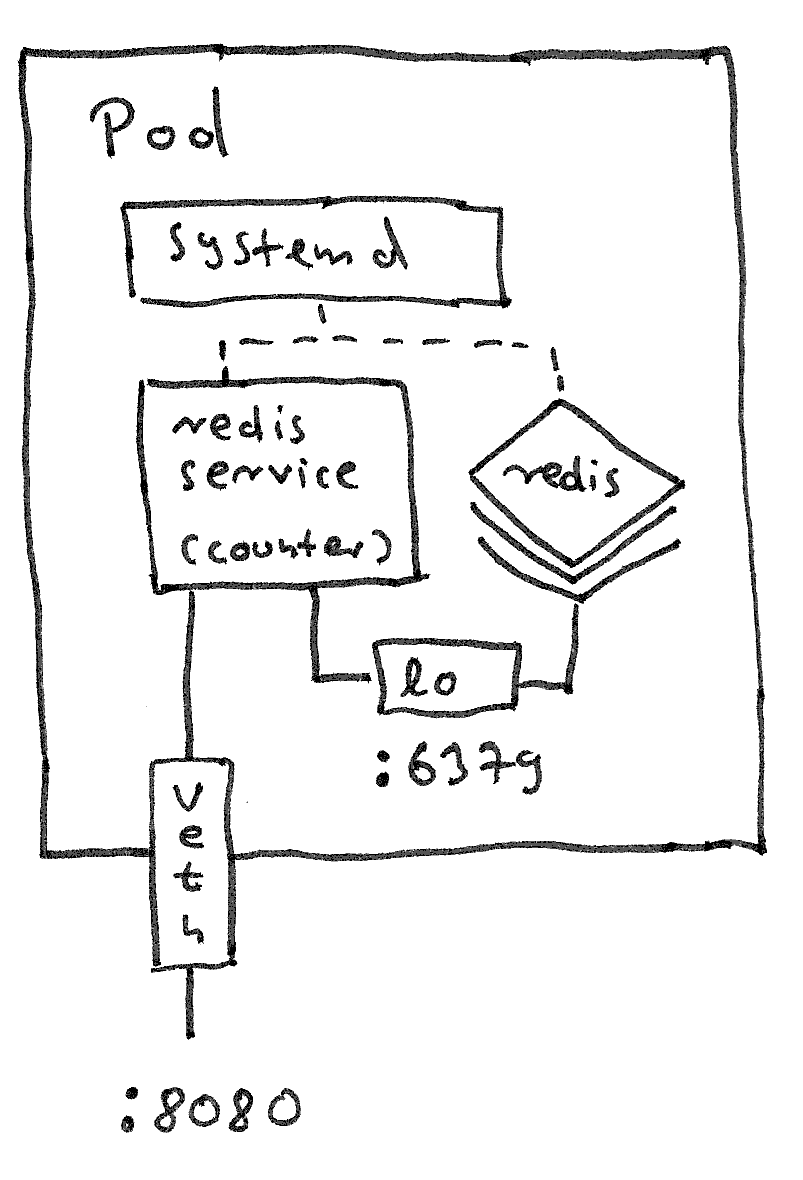 Pod
systemd
redis
service
(counter)
redis
lo
:6379
veth
:8080